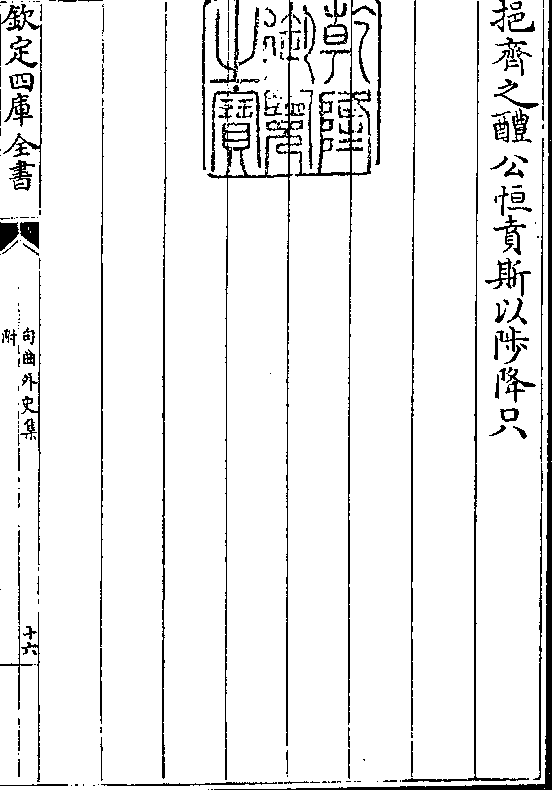 挹齊之醴公恒賁斯以陟降只
乾隆御覽之寶
欽定四庫全書
句曲外史集
附
十六